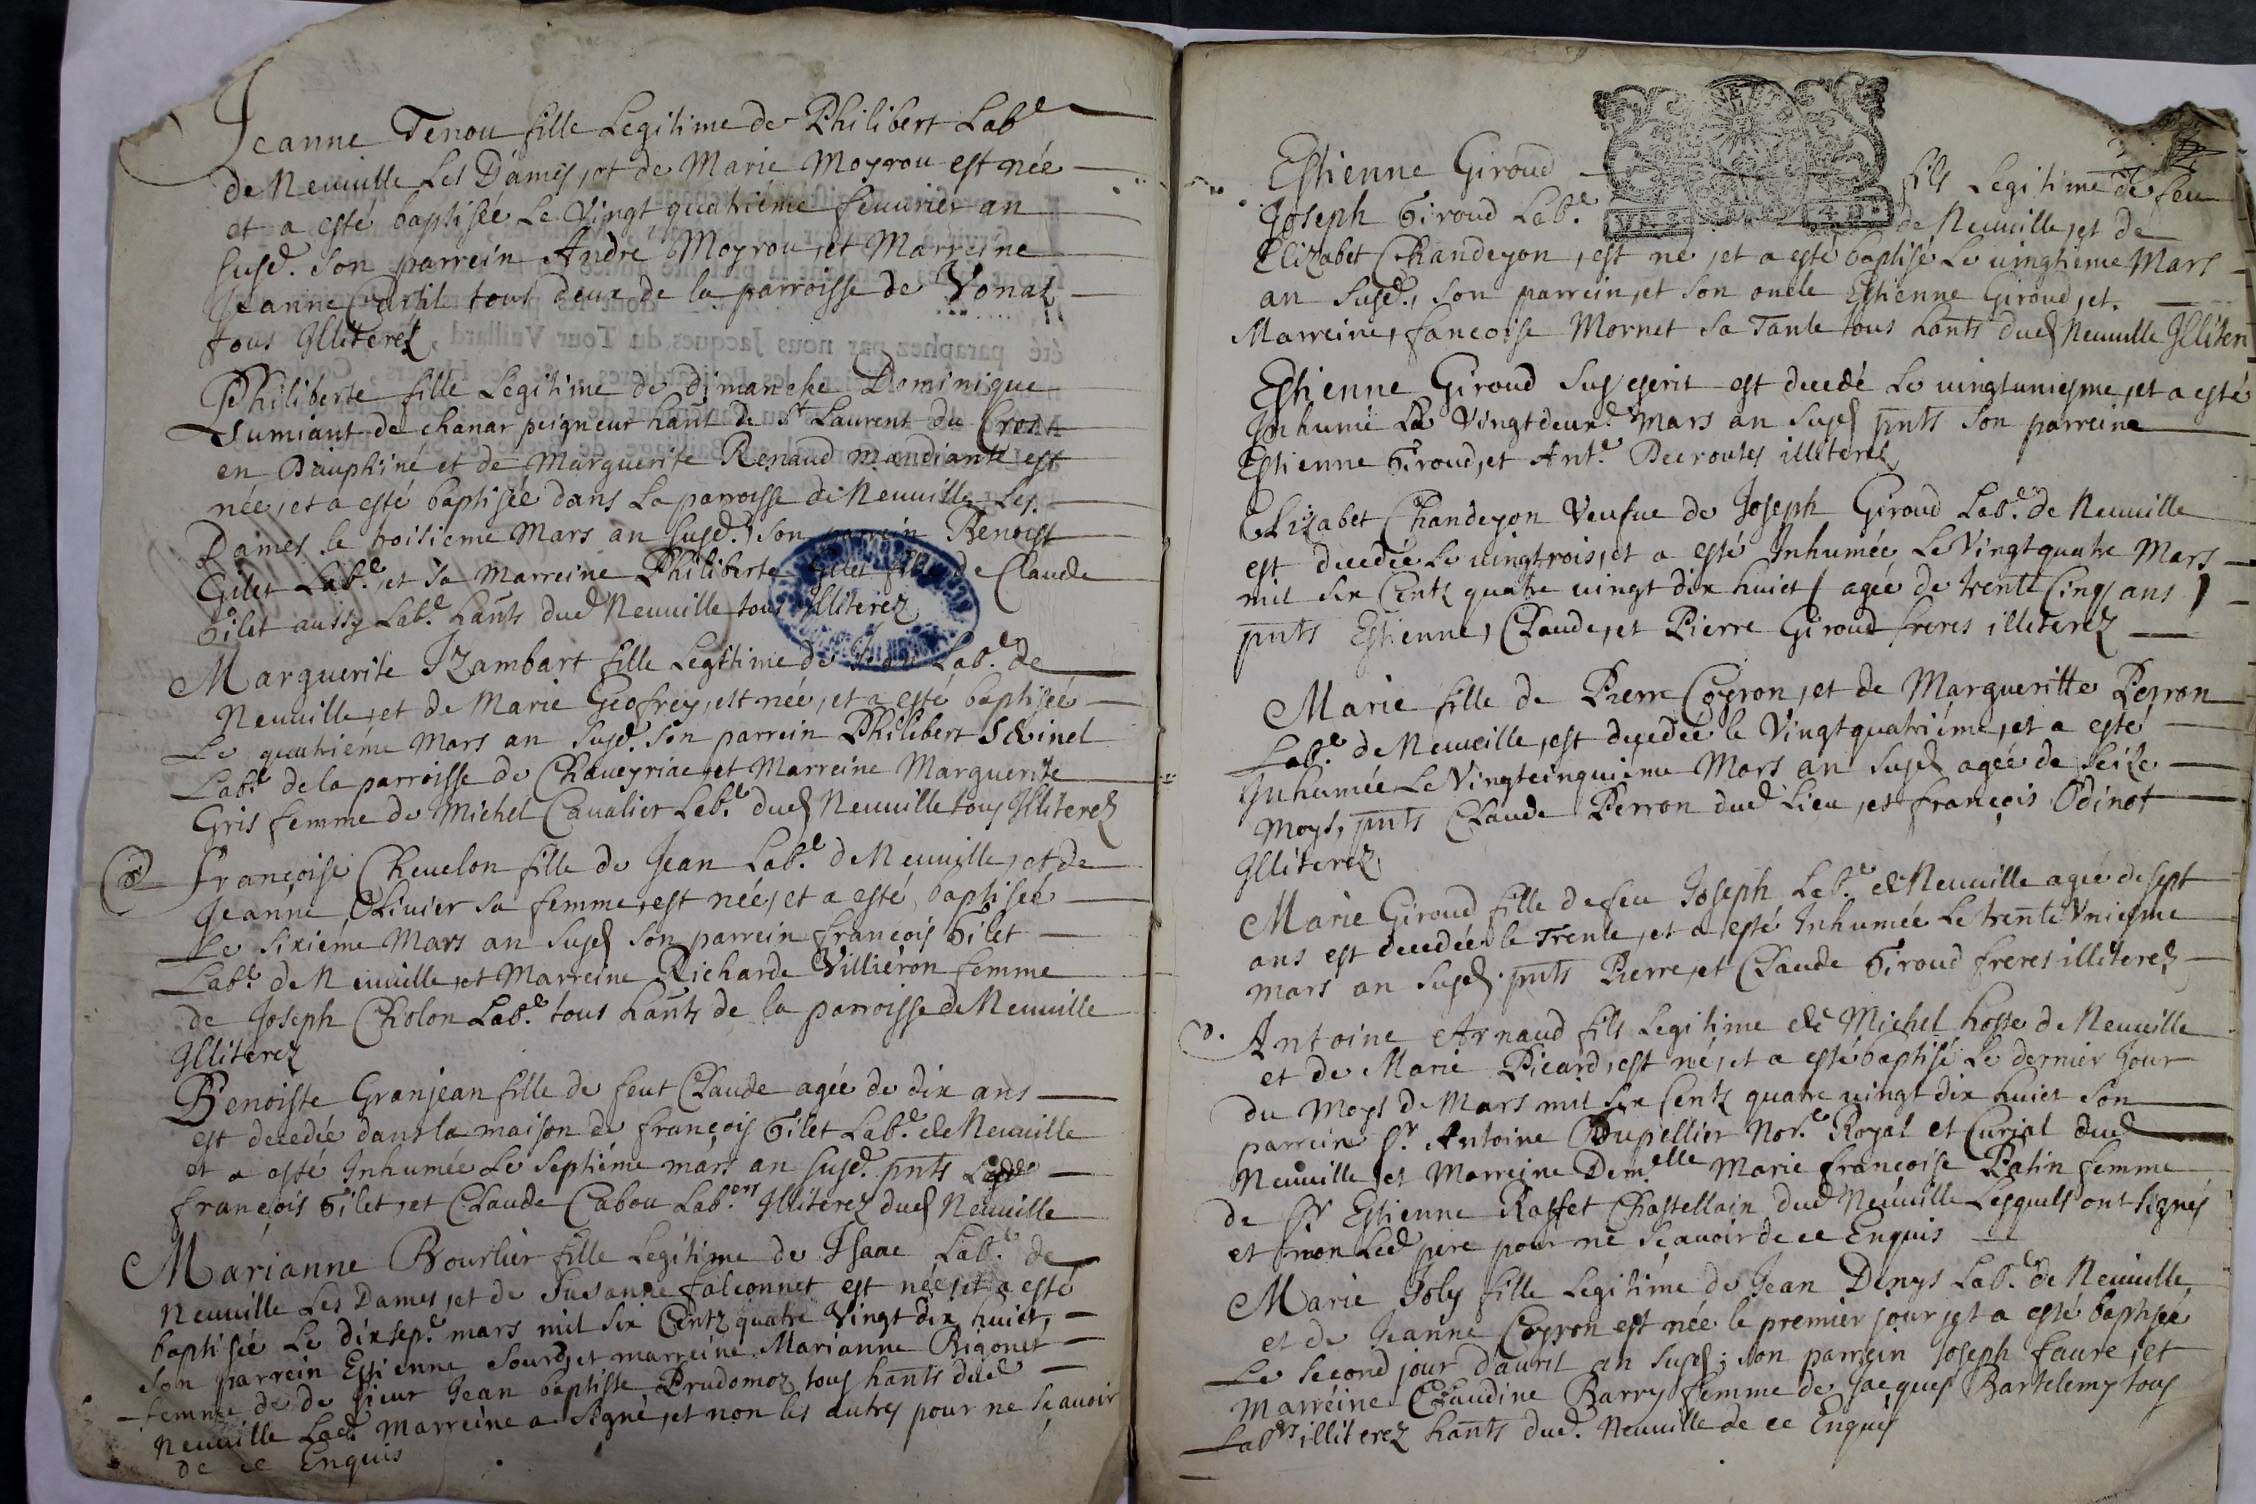 Jeanne Tenou fille Legitime de Philibert Lab.e
de Neuuille Les Dames, et de Marie Moyrou est née
et a esté baptisée Le Vingt quatriéme feuurier an
susd. son parrein André Moyrou, et Marreine
Jeanne tous deux de la parroisse de Vonas
tous Illiterez
Philiberte fille Legitime de dimanche Dominique
Lumiant de chanar peigneur hant de St Laurent du Cros
en Dauphiné et de Marguerite Renaud mandiante est
née, et a esté baptisée dans La parroisse de Neuuille Les
Dames le troisieme Mars an susd. son parrein Benoist
Gilet Lab.e et sa Marreine Philiberte Gilet fille de Claude
Gilet aussy Lab.e hants dud Neuuille tous Illiterez
Marguerite Izambart fille Legitime de Jean Lab.e de
Neuuille, et de Marie Geofrey, est née, et a esté baptisée
Le quatriéme Mars an susd. son parrein Philibert
Lab.e de la parroisse de Chaueyriac, et Marreine Marguerite
Gris femme de Michel Caualier Lab.e dud Neuuille tous Illiterez
Françoise Cheuelon fille de Jean Lab.e de Neuuille, et de
Jeanne Oliuier sa femme, est née, et a esté baptisée
Le sixiéme Mars an susd son parrein françois Gilet
Lab.e de Neuuille, et Marreine Richarde Villiéron femme
de Joseph Cholon Lab.e tous hants de la parroisse de Neuuille
Illiterez
Benoiste Granjean fille de feut Claude agée de dix ans
est decedée dans la maison de françois Gilet Lab.e de Neuuille
et a esté Inhumée Le septiéme mars an susd. pnts Led
françois Gilet, et Claude Cabou Lab.ers Illiterez dud Neuuille
Marianne Bourlier fille Legitime de Isaac Lab.e de
Neuuille Les Dames, et de Susanne falconnet est née, et a esté
baptisée Le dixsep.e mars mil six Centz quatre Vingt dix huict,
son parrein Estienne Sourd, et marreine Marianne Bigonet
femme de de sieur Jean baptiste Prudomoz tous hants dud
Neuuille Lad. Marreine a signé, et non les autres pour ne sçauoir
de ce Enquis
Estienne Giroud fils Legitime de feu
Joseph Giroud Lab.e de Neuuille, et de
Elizabet Chandeyon, est né, et a esté baptisé Le uingtiéme Mars
an susd., son parrein, et son oncle Estienne Giroud, et
Marreine, fancoise Mornet sa Tante tous hants dud Neuuille Illiterez
Estienne Giroud susescrit est decedé Le uingtuniesme, et a esté
Inhumé Le Vingtdeux.e Mars an susd pnts son parreine
Estienne Giroud, et Ant.e Decroutes illiterez
Elizabet Chandeyon Veufue de Joseph Giroud Lab.e de Neuuille
est decedée Le uingtrois, et a esté Inhumée Le Vingtquatre Mars
mil six Centz quatre uingt dix huict ( agée de trente Cinq ans )
pnts Estienne, Claude, et Pierre Giroud freres illiterez
Marie fille de Pierre Coyron, et de Margueritte Perron
Lab.e de Neuuille, est decedée le Vingtquatriéme, et a esté
Inhumée Le Vingtcinquiéme Mars an susd agée de seize
moys, pnts Claude Perron dud Lieu, et françois Odinot
Illiterez
Marie Giroud fille de feu Joseph Lab.e de Neuuille agée de sept
ans est decedée le Trente, et a esté Inhumée Le trente Vniesme
mars an susd. pnts Pierre, et Claude Giroud freres illiterez
Antoine Arnaud fils Legitime de Michel hoste de Neuuille
et de Marie Picard, est né, et a esté baptisé Le dernier Jour
du moys de Mars mil six Centz quatre uingt dix huict son
parrein Sr Antoine Dupellier Nor.e Royal et Curial dud
Neuuille et Marreine Dem.elle Marie françoise Patin femme
de Sr Estienne Raffet Chastellain dud Neuuille Lesquels ont signés
et non Led pere pour ne sçauoir de ce Enquis
Marie Joly fille Legitime de Jean Denys Lab.e de Neuuille
et de Jeanne Coyron est née le premier jour, et a esté baptisée
Le second jour d'auril an susd; son parrein Joseph faure, et
Marreine Claudine Barry femme de Jacques Bartelemy tous
Lab.rs illiterez hants dud. Neuuille de ce Enquis